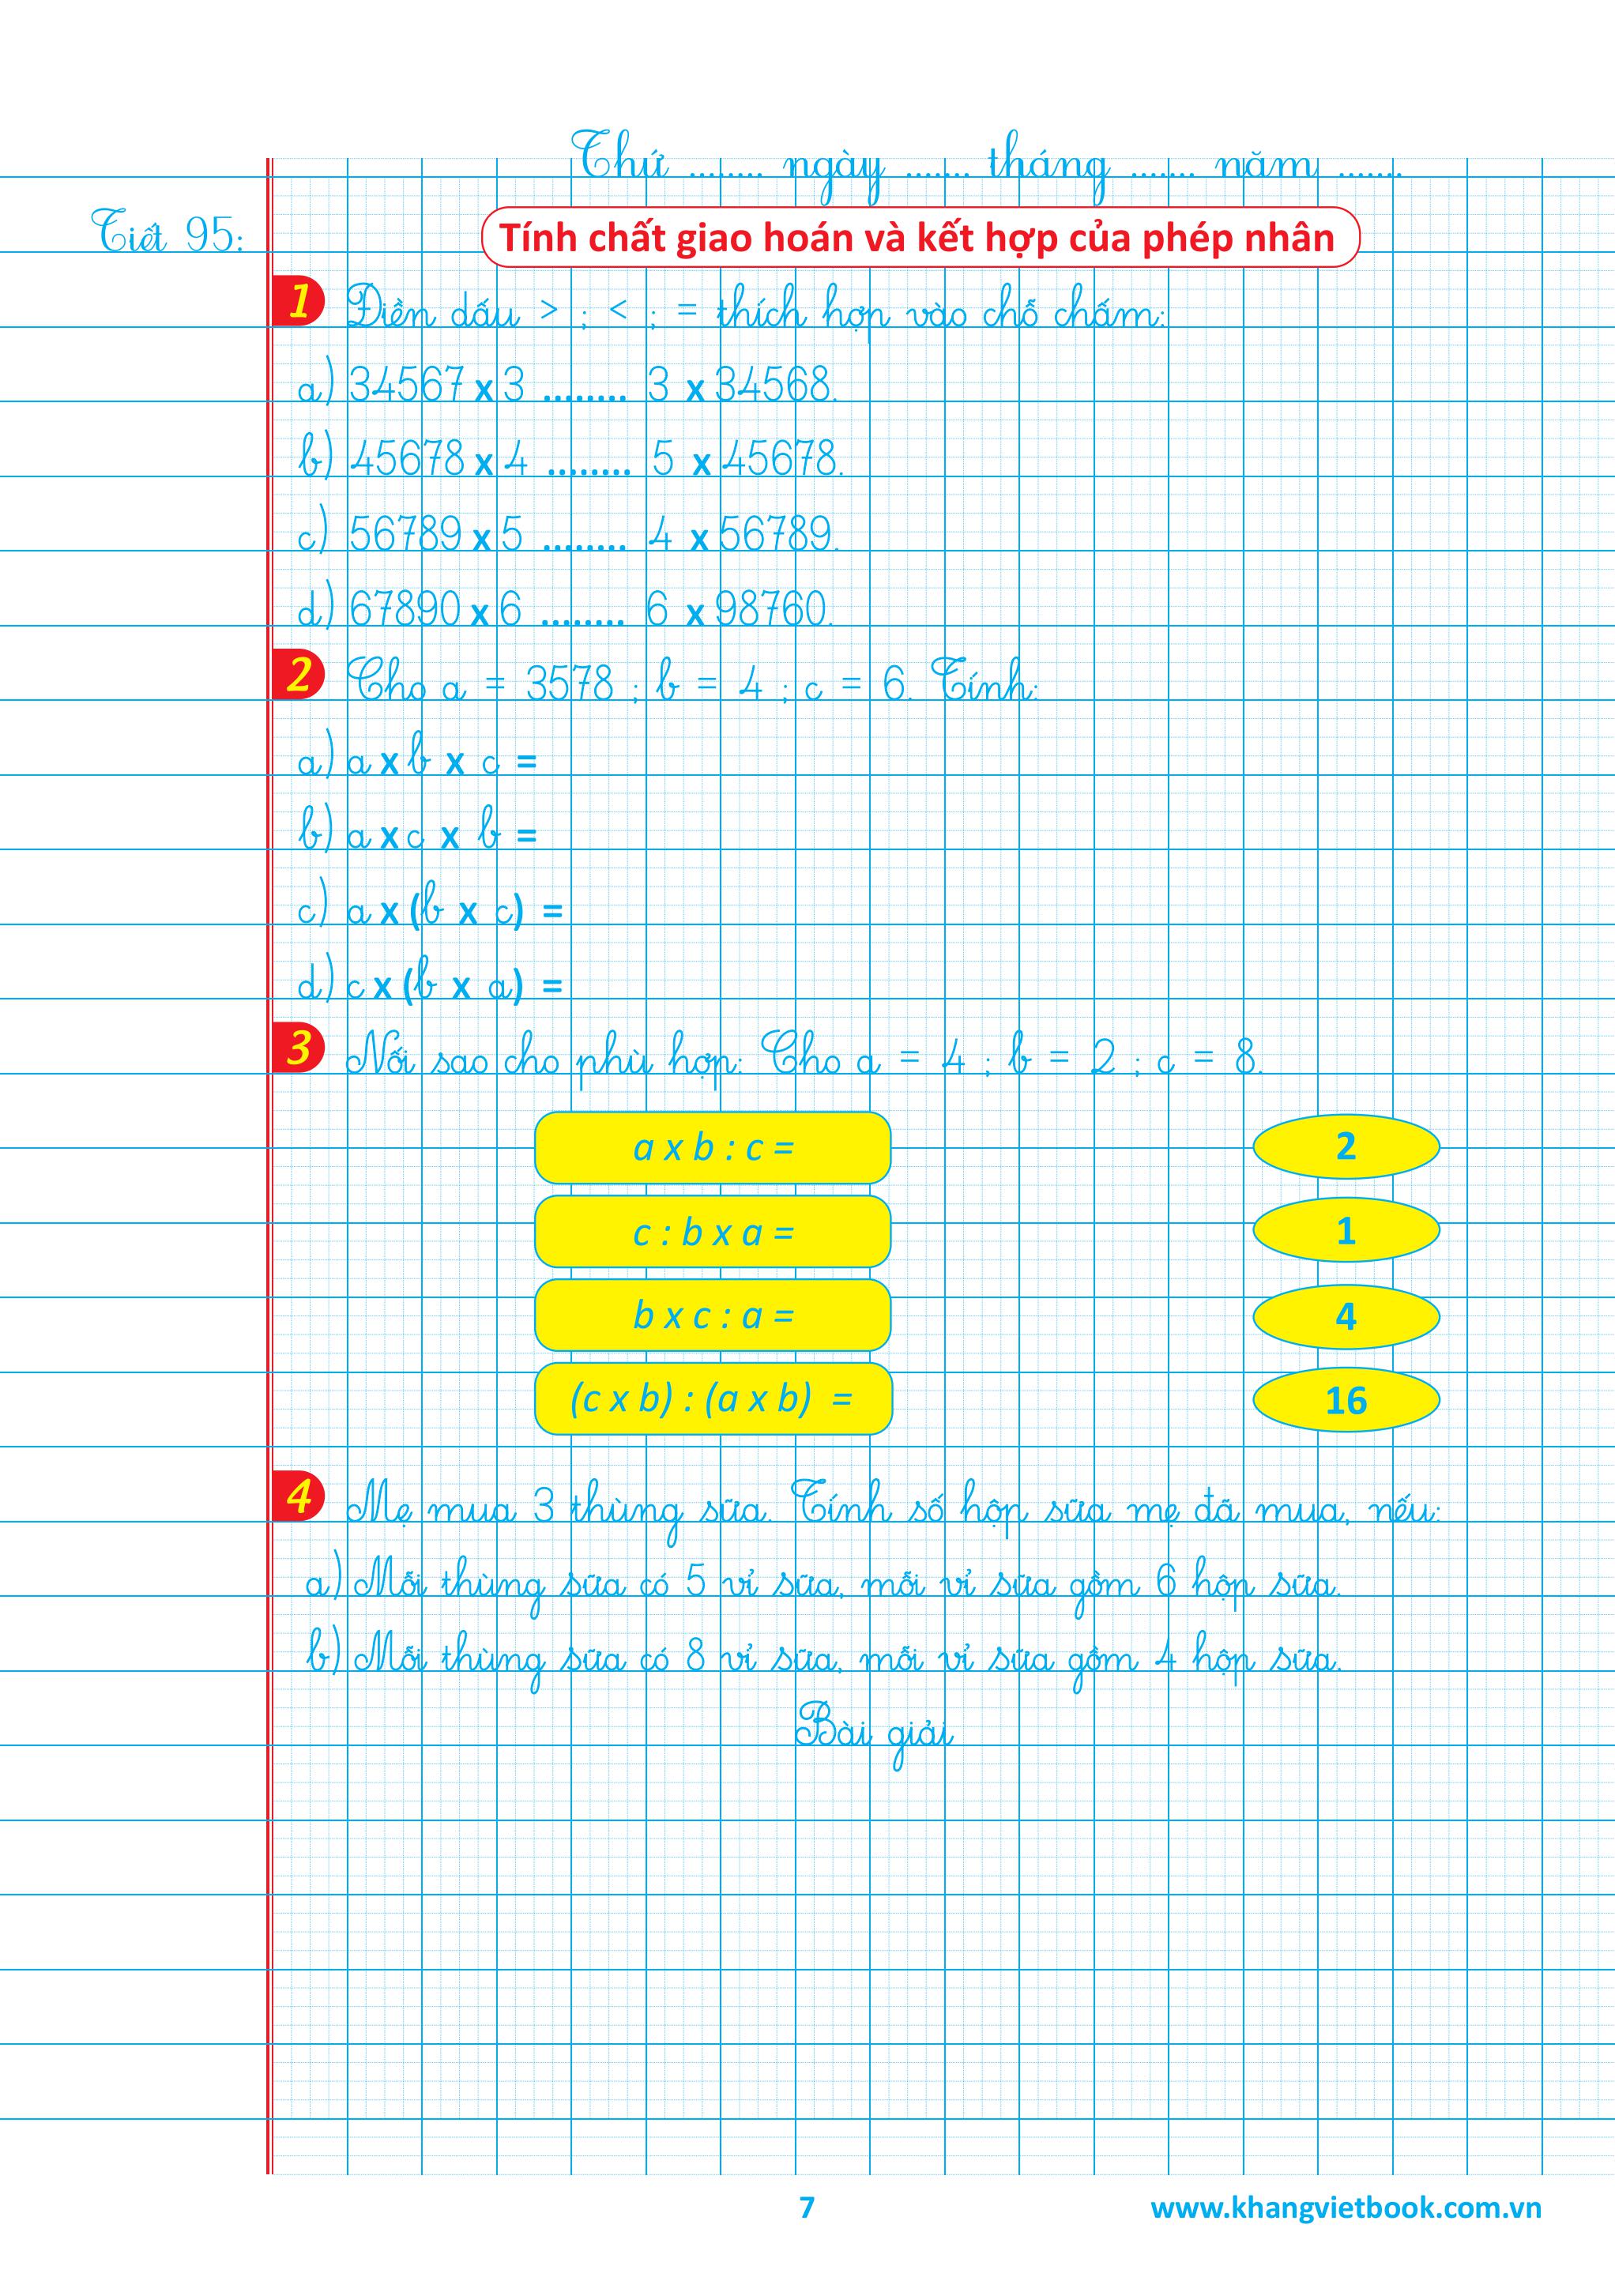 Thứ ........ ngày ....... tháng ....... năm .......
Tiết 95:
Tính chất giao hoán và kết hợp của phép nhân
1 Điền dấu > ; < ; = thích hợp vào chỗ chấm:
a) 34567 x 3 ........ 3 x 34568.
b) 45678 x 4 ........ 5 x 45678.
c) 56789 x 5 ........ 4 x 56789.
d) 67890 x 6 ........ 6 x 98760.
2 Cho a = 3578 ; b = 4 ; c = 6. Tính:
a) a x b x c =
b) a x c x b =
c) a x (b x c) =
d) c x (b x a) =
3 Nối sao cho phù hợp: Cho a = 4 ; b = 2 ; c = 8.
a x b : c = 2
c : b x a = 1
b x c : a = 4
(c x b) : (a x b) = 16
4 Mẹ mua 3 thùng sữa. Tính số hộp sữa mẹ đã mua, nếu:
a) Mỗi thùng sữa có 5 vỉ sữa, mỗi vỉ sữa gồm 6 hộp sữa.
b) Mỗi thùng sữa có 8 vỉ sữa, mỗi vỉ sữa gồm 4 hộp sữa.
Bài giải
7
www.khangvietbook.com.vn